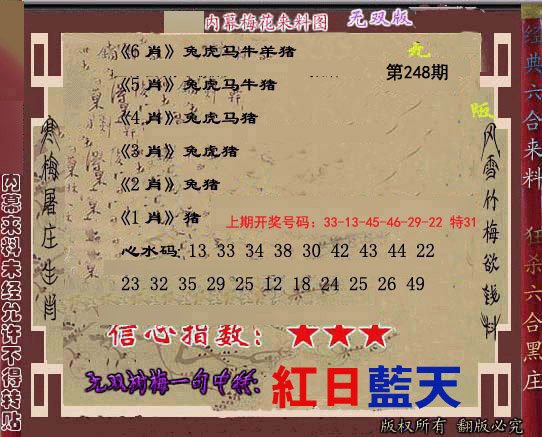 内幕梅花来料图 无双版
《6 肖》兔虎马牛羊猪
第248期
《5 肖》兔虎马牛猪
《4 肖》兔虎马猪
《3 肖》兔虎猪
《2 肖》兔猪
《1 肖》猪
上期开奖号码：33-13-45-46-29-22 特31
心水码: 13 33 34 38 30 42 43 44 22
23 32 35 29 25 12 18 24 25 26 49
信心指数：★★★
紅日藍天
寒梅屠庄生肖
风雪竹梅欲钱料
内幕来料未经允许不得转贴
经典六合来料
狂杀六合黑庄
版权所有 翻版必究